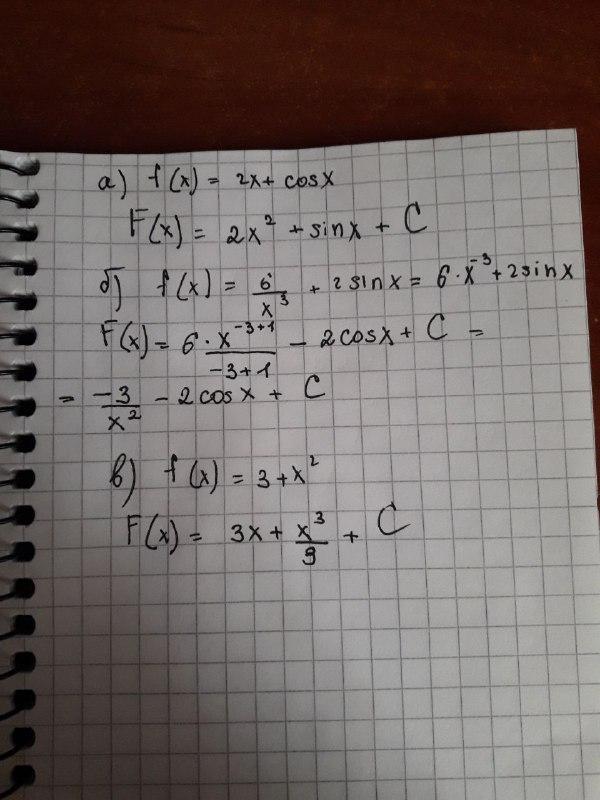 а) f(x) = 2x + cosx
F(x) = 2x² + sinx + C
б) f(x) = 6/x³ + 2sinx = 6·x⁻³ + 2sinx
F(x) = 6·x⁻³⁺¹/(-3+1) - 2cosx + C =
= -3/x² - 2cosx + C
в) f(x) = 3 + x²
F(x) = 3x + x³/9 + C